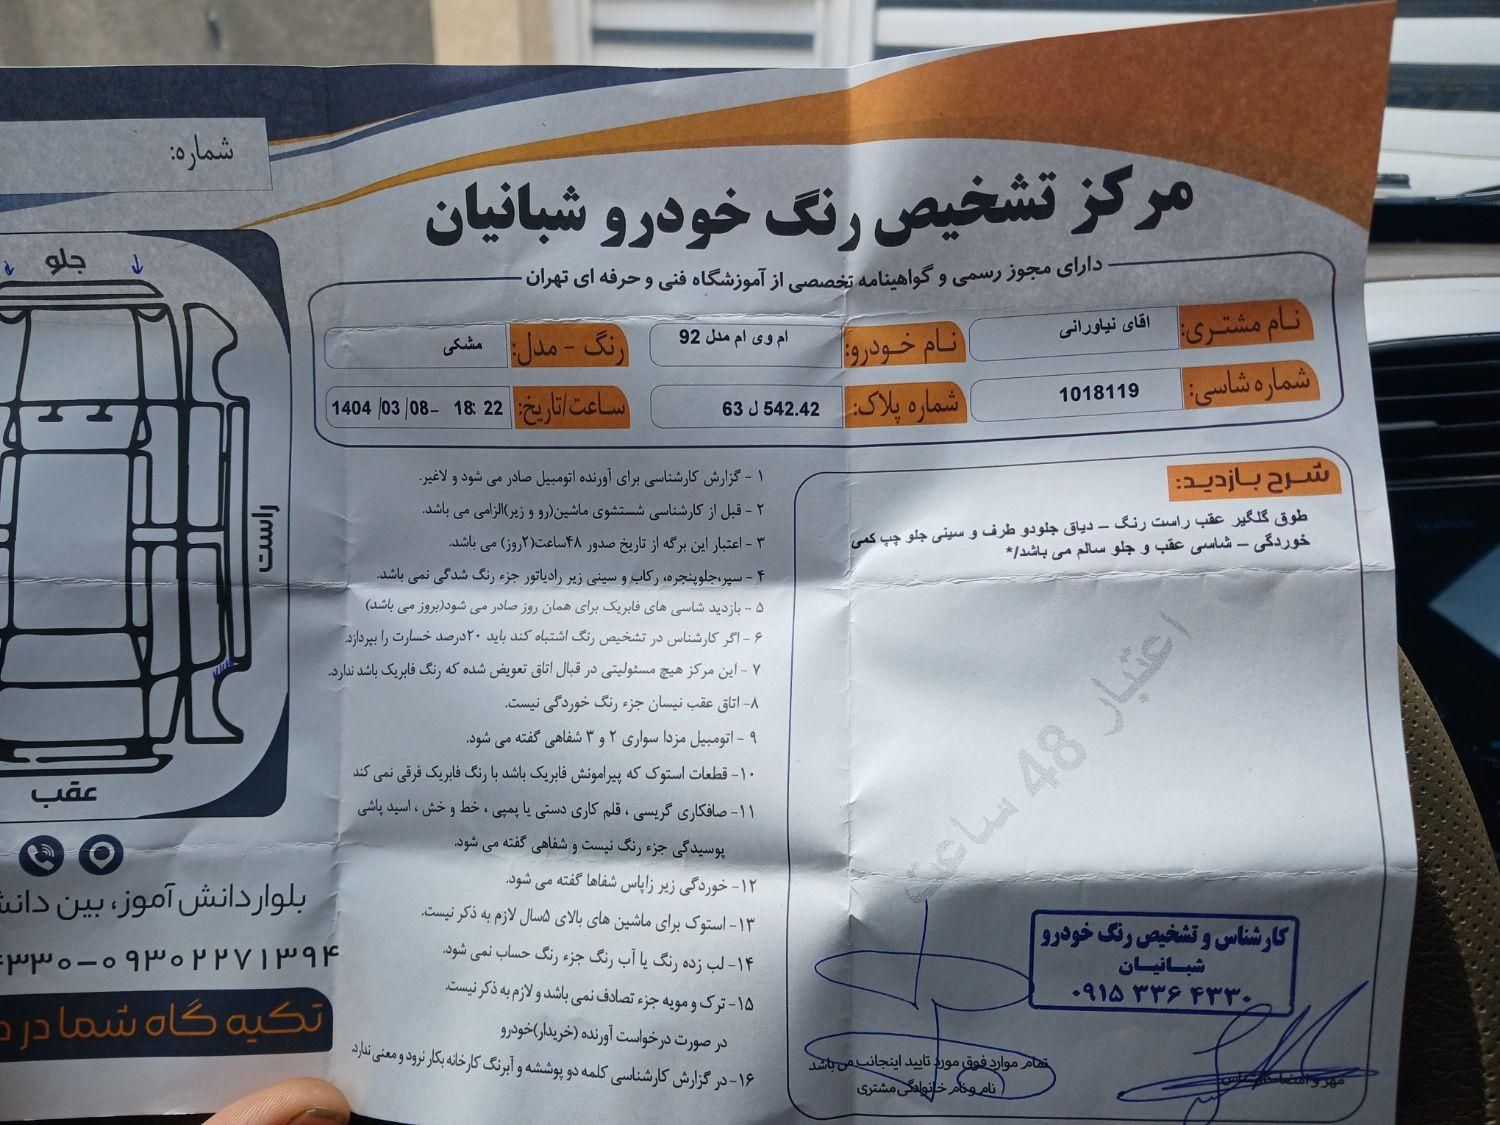 شماره:
مرکز تشخیص رنگ خودرو شبانیان
دارای مجوز رسمی و گواهینامه تخصصی از آموزشگاه فنی و حرفه ای تهران
نام مشتری: اقای نیاورانی
نام خودرو: ام وی ام مدل 92
رنگ - مدل: مشکی
شماره شاسی: 1018119
شماره پلاک: 542.42 ل 63
ساعت/تاریخ: 1404 /03 /08- 18: 22
شرح بازدید:
طوق گلگیر عقب راست رنگ - دیاق جلودو طرف و سینی جلو چپ کمی
خوردگی - شاسی عقب و جلو سالم می باشد/*
۱ - گزارش کارشناسی برای آورنده اتومبیل صادر می شود و لاغیر.
۲ - قبل از کارشناسی شستشوی ماشین(رو و زیر)الزامی می باشد.
۳ - اعتبار این برگه از تاریخ صدور ۴۸ساعت(۲روز) می باشد.
۴ - سپر،جلوپنجره، رکاب و سینی زیر رادیاتور جزء رنگ شدگی نمی باشد.
۵ - بازدید شاسی های فابریک برای همان روز صادر می شود(بروز می باشد)
۶ - اگر کارشناس در تشخیص رنگ اشتباه کند باید ۲۰درصد خسارت را بپردازد.
۷ - این مرکز هیچ مسئولیتی در قبال اتاق تعویض شده که رنگ فابریک باشد ندارد.
۸- اتاق عقب نیسان جزء رنگ خوردگی نیست.
۹ - اتومبیل مزدا سواری ۲ و ۳ شفاهی گفته می شود.
۱۰- قطعات استوک که پیرامونش فابریک باشد با رنگ فابریک فرقی نمی کند
۱۱- صافکاری گریسی ، قلم کاری دستی یا پمپی ، خط و خش ، اسید پاشی
پوسیدگی جزء رنگ نیست و شفاهی گفته می شود.
۱۲- خوردگی زیر زاپاس شفاها گفته می شود.
۱۳- استوک برای ماشین های بالای ۵سال لازم به ذکر نیست.
۱۴- لب زده رنگ یا آب رنگ جزء رنگ حساب نمی شود.
۱۵- ترک و مویه جزء تصادف نمی باشد و لازم به ذکر نیست.
در صورت درخواست آورنده (خریدار)خودرو
۱۶- در گزارش کارشناسی کلمه دو پوششه و آبرنگ کارخانه بکار نرود و معنی ندارد.
اعتبار 48 ساعت
کارشناس و تشخیص رنگ خودرو
شبانیان
۰۹۱۵ ۳۳۶ ۴۳۳۰
تمام موارد فوق مورد تایید اینجانب می باشد
نام و نام خانوادگی مشتری
مهر و امضا کارشناس
جلو
راست
عقب
بلوار دانش آموز، بین
۴۳۳۰-۰۹۳۰۲۲۷۱۳۹۴
تکیه گاه شما در
localmusic